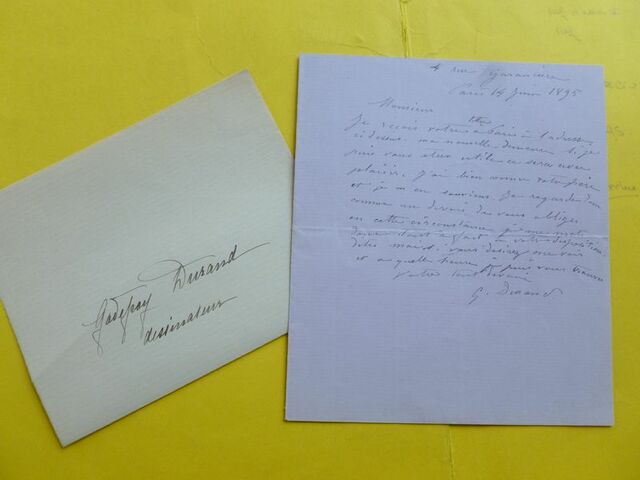 Godefroy Durand
dessinateur
4 rue Garancière
Paris 14 Juin 1895
Monsieur
Je reçois votre lttre à Paris à l'adresse
ci dessus. ma nouvelle demeure. Si je
puis vous être utile ce sera avec
plaisir. J'ai bien connu votre père
et je m'en souviens. Je regarde donc
comme un devoir de vous obliger
en cette circonstance que me
donc tout à fait à votre disposition.
dites moi si vous désirez me voir
et à quelle heure je puis vous trouver
Votre tout dévoué
G. Durand